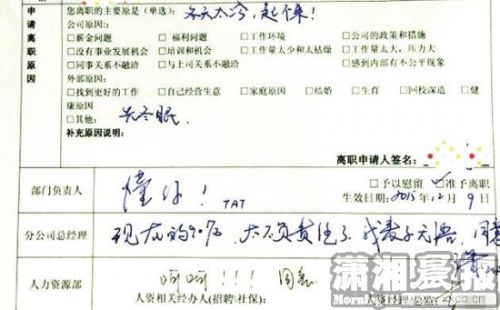 申请离职原因
您离职的主要原是(单选): 冬天太冷,起不来!
公司原因:
□薪金问题 □福利问题 □工作环境 □公司的政策和措施
□没有事业发展机会 □培训和机会 □工作量太少和太枯燥 □工作量太大,压力大
□同事关系不融洽 □与上司关系不融洽 □感到内部有不公平现象
外部原因:
□找到更好的工作 □自己经营生意 □家庭原因 □结婚 □生育 □回校深造 □健
康原因
□其他: 去冬眠。
补充原因说明:
离职申请人签名:
部门负责人 懂你! TAT □予以慰留 ☑准予离职
生效日期:2015年12月9日
分公司总经理 现在的90后,太不负责任了,我表示无语,同意
人力资源部 呵呵!!! 同意
人资相关经办人(招聘\社保): 人资经理/总监:
潇湘晨报